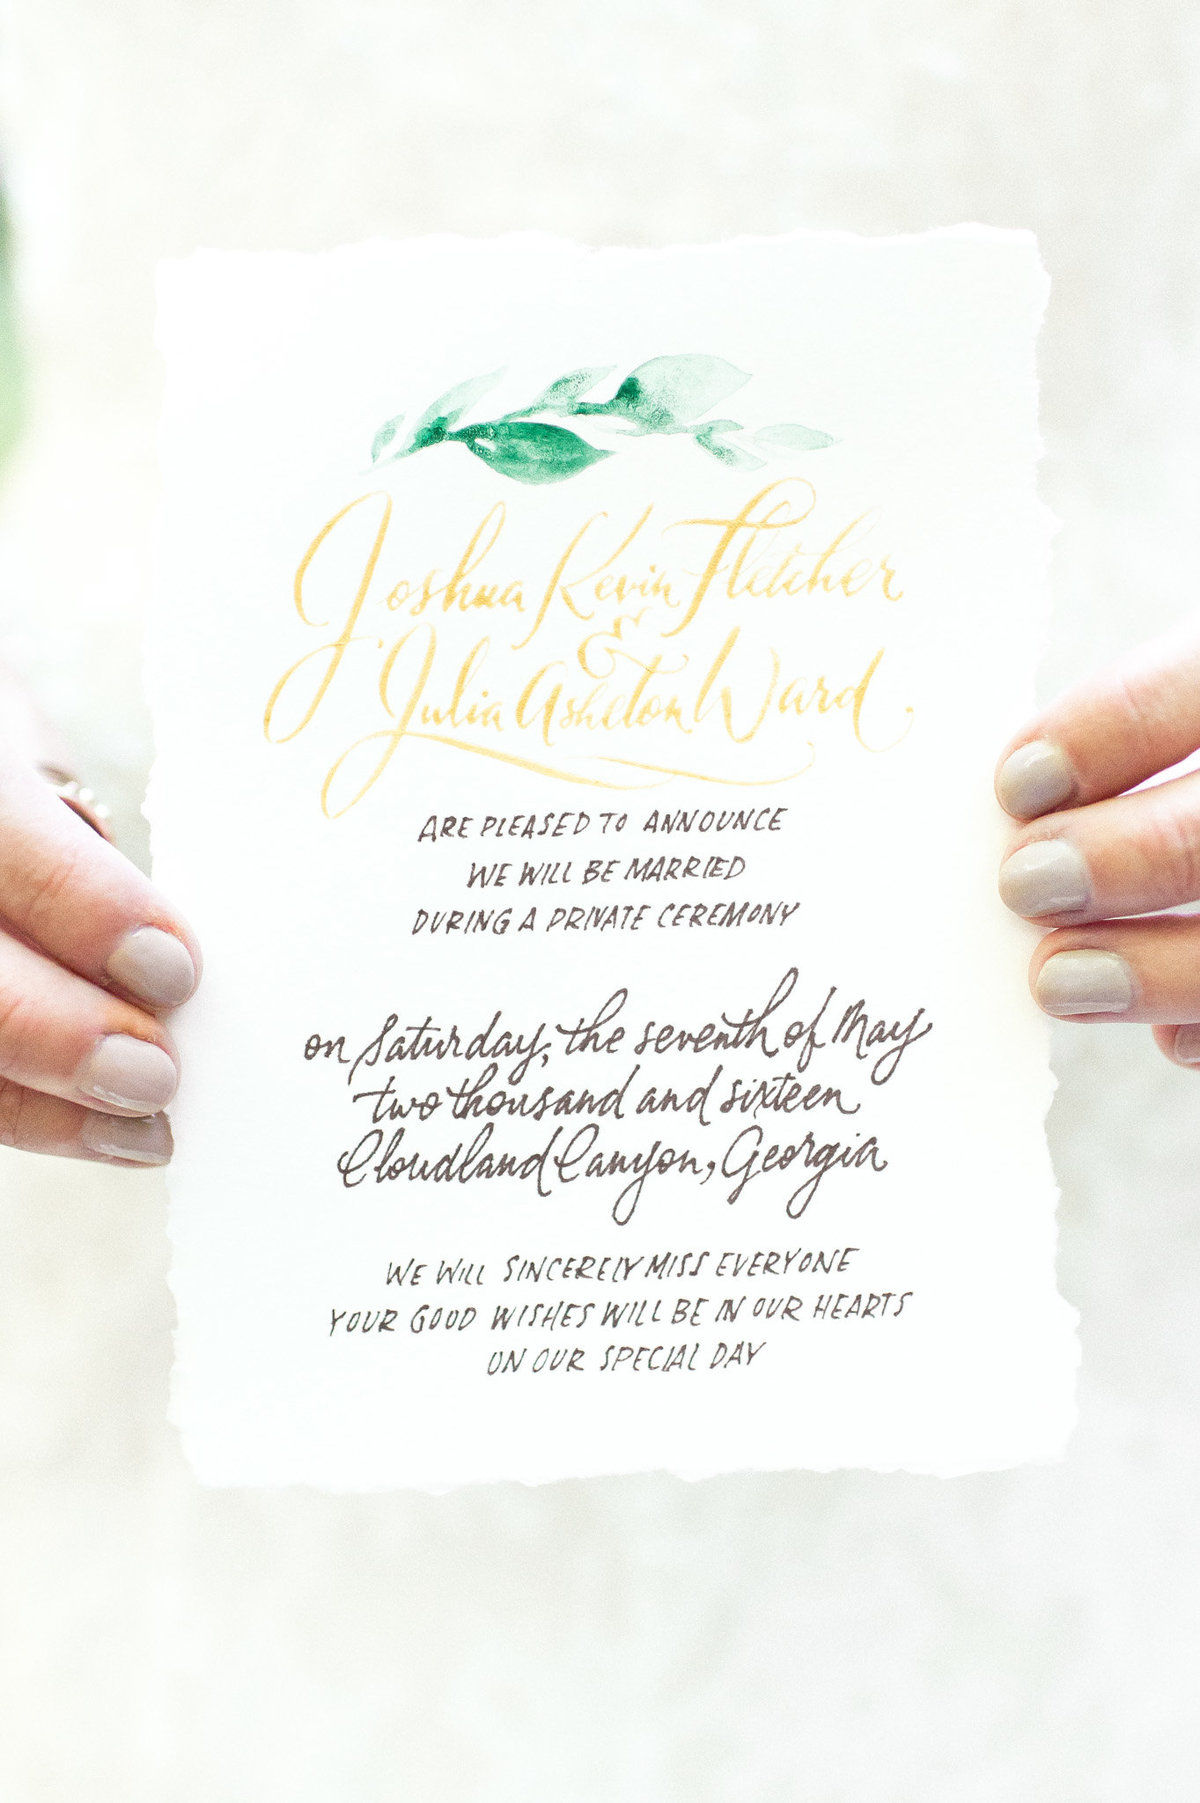 Joshua Kevin Fletcher
&
Julia Asheton Ward
ARE PLEASED TO ANNOUNCE
WE WILL BE MARRIED
DURING A PRIVATE CEREMONY
on Saturday, the seventh of May
two thousand and sixteen
Cloudland Canyon, Georgia
WE WILL SINCERELY MISS EVERYONE
YOUR GOOD WISHES WILL BE IN OUR HEARTS
ON OUR SPECIAL DAY